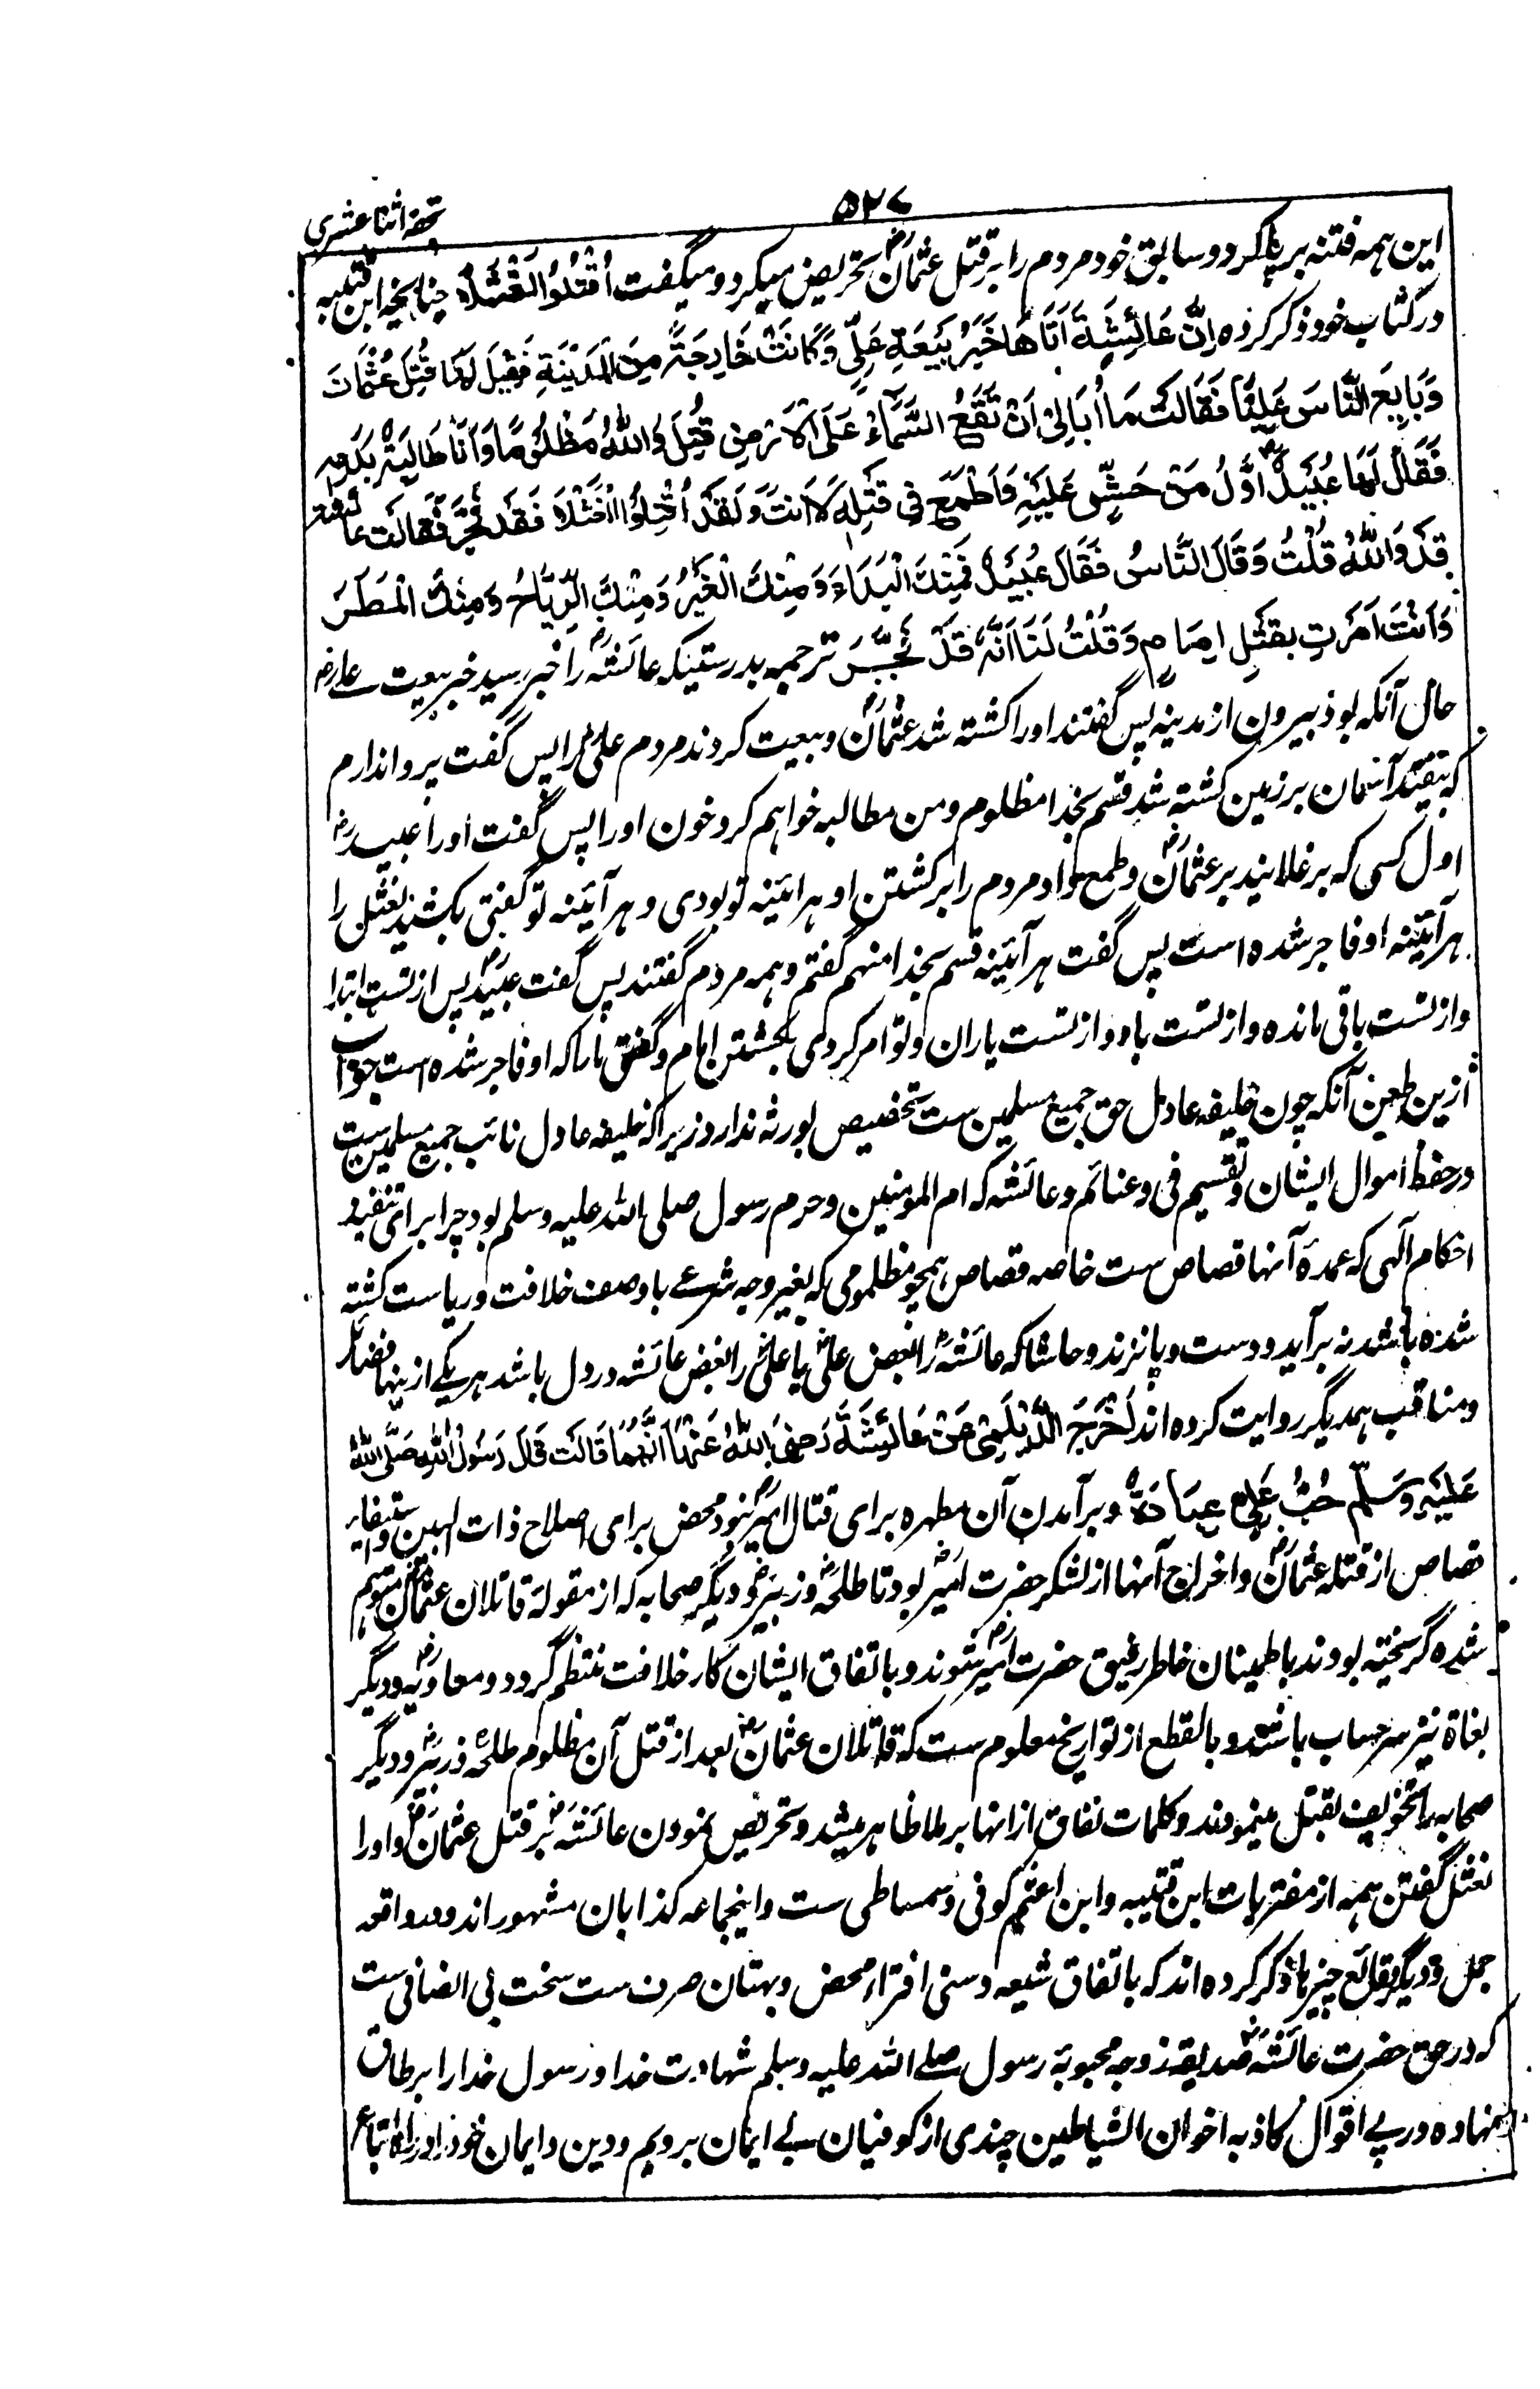 ۵۲۷
تحفه اثنا عشری
این همه فتنه برپا کرد و سابق خود مردم را بر قتل عثمانؓ تحریض میکرد و میگفت اُقْتُلُوا نَعْثَلًا چنانچه ابن قتیبه
در کتاب خود ذکر کرده اِنَّ عَائِشَةَ اَتَاهَا خَبَرُ بَیْعَةِ عَلِیٍّ وَکَانَتْ خَارِجَةً مِنَ الْمَدِیْنَةِ فَقِیْلَ لَهَا قُتِلَ عُثْمَانُ
وَبَایَعَ النَّاسُ عَلِیًّا فَقَالَتْ مَا اُبَالِیْ اَنْ تَقَعَ السَّمَاءُ عَلَی الْاَرْضِ قُتِلَ وَاللّٰهِ مَظْلُوْمًا وَاَنَا طَالِبَةٌ بِدَمِهٖ
فَقَالَ لَهَا عُبَیْدٌ اَوَّلُ مَنْ حَشّٰی عَلَیْهِ وَاَطْمَعَ فِی قَتْلِهٖ لَاَنْتَ وَلَقَدْ اُقْتُلُوْا نَعْثَلًا فَقَدْ فَجَرَ فَقَالَتْ عائشة
قَدْ وَاللّٰهِ قُلْتُ وَقَالَ النَّاسُ فَقَالَ عُبَیْدٌ فَمِنْكَ الْبَدَاءُ وَمِنْكَ الْغِیَرُ وَمِنْكَ الرِّیَاحُ وَمِنْكَ الْمَطَرُ
وَاَنْتَ اَمَرْتِ بِقَتْلِ اِمَامٍ وَقُلْتُ لَنَا اَنَّهٗ قَدْ فَجَرَ ترجمه بدرستیکه عائشهؓ را خبر رسید خبر بیعت علیؓ
حال آنکه بود بیرون از مدینه پس گفتند او را کشته شد عثمانؓ و بیعت کردند مردم علیؓ را پس گفت پروا ندارم
که بیفتد آسمان بر زمین کشته شد قسم بخدا مظلوم و من مطالبه خواهم کرد خون او را پس گفت او را عبیدؓ
اول کسی که برغلانید بر عثمانؓ و طمع داد مردم را بر کشتن او هرآئینه تو بودی و هرآئینه تو گفتی بکشید نعثل را
هرآئینه او فاجر شده است پس گفت هرآئینه قسم بخدا منهم گفتم و همه مردم گفتند پس گفت عبیدؓ پس از تست ابتدا
و از تست باقی مانده و از تست باد و از تست باران و تو امر کردی بکشتن امام و گفتی مارا که او فاجر شده است جواب
ازین طعن آنکه چون خلیفه عادل حق جمیع مسلمین ست تخصیص بورثه ندارد زیرا که خلیفه عادل نائب جمیع مسلمین ست
در حفظ اموال ایشان و تقسیم فی و غنائم و عائشه که ام المومنین و حرم رسول صلی الله علیه وسلم بود چرا برای تنفیذ
احکام الهی که عمده آنها قصاص ست خاصه قصاص همچو مظلومی که بغیر وجه شرعے با وصف خلافت و ریاست کشته
شده باشد نه برآید و دست و پا نزند و حاشا که عائشهؓ را بغض علیؓ یا علیؓ را بغض عائشه در دل باشد هر یکے ازینها فضائل
و مناقب همدیگر روایت کرده اند اَخْرَجَ الدَّیْلَمِیُّ عَنْ عَائِشَةَ رَضِیَ اللّٰهُ عَنْهَا اَنَّهَا قَالَتْ قَالَ رَسُوْلُ اللّٰهِ صَلَّی اللّٰهُ
عَلَیْهِ وَسَلَّمَ حُبُّ عَلِیٍّ عِبَادَةٌ و برآمدن آن مطهره برای قتال امیرؓ نبود محض برای اصلاح ذات البین و استیفاء
قصاص از قتله عثمانؓ و اخراج آنها از لشکر حضرت امیرؓ بود تا طلحهؓ و زبیرؓ و دیگر صحابه که از مقولهٔ قاتلان عثمانؓ متوهم
شده گریخته بودند باطمینان خاطر رفیق حضرت امیرؓ شوند و باتفاق ایشان کار خلافت منتظم گردد و معاویهؓ و دیگر
بغاة نیز سرحساب باشند و بالقطع از تواریخ معلوم ست که قاتلان عثمانؓ بعد از قتل آن مظلوم طلحهؓ و زبیرؓ و دیگر
صحابه را تخویف بقتل مینمودند و کلمات نفاق از انها برملا ظاهر میشد و تحریص نمودن عائشهؓ بر قتل عثمانؓ و او را
نعثل گفتن همه از مفتریات ابن قتیبه و ابن اعثم کوفی و سمساطی ست و اینجماعه کذابان مشهور اند و در واقعه
جمل و دیگر وقائع چیزها ذکر کرده اند که باتفاق شیعه و سنی افتراء محض و بهتان صرف ست سخت بی انصافی ست
که در حق حضرت عائشهؓ صدیقه زوجه محبوبهٔ رسول صلے الله علیه وسلم شهادت خدا و رسول خدا را بر طاق
نهاده در پے اقوال کاذبه اخوان الشیاطین چندی از کوفیان بے ایمان برویم و دین و ایمان خود را در راه اتباع